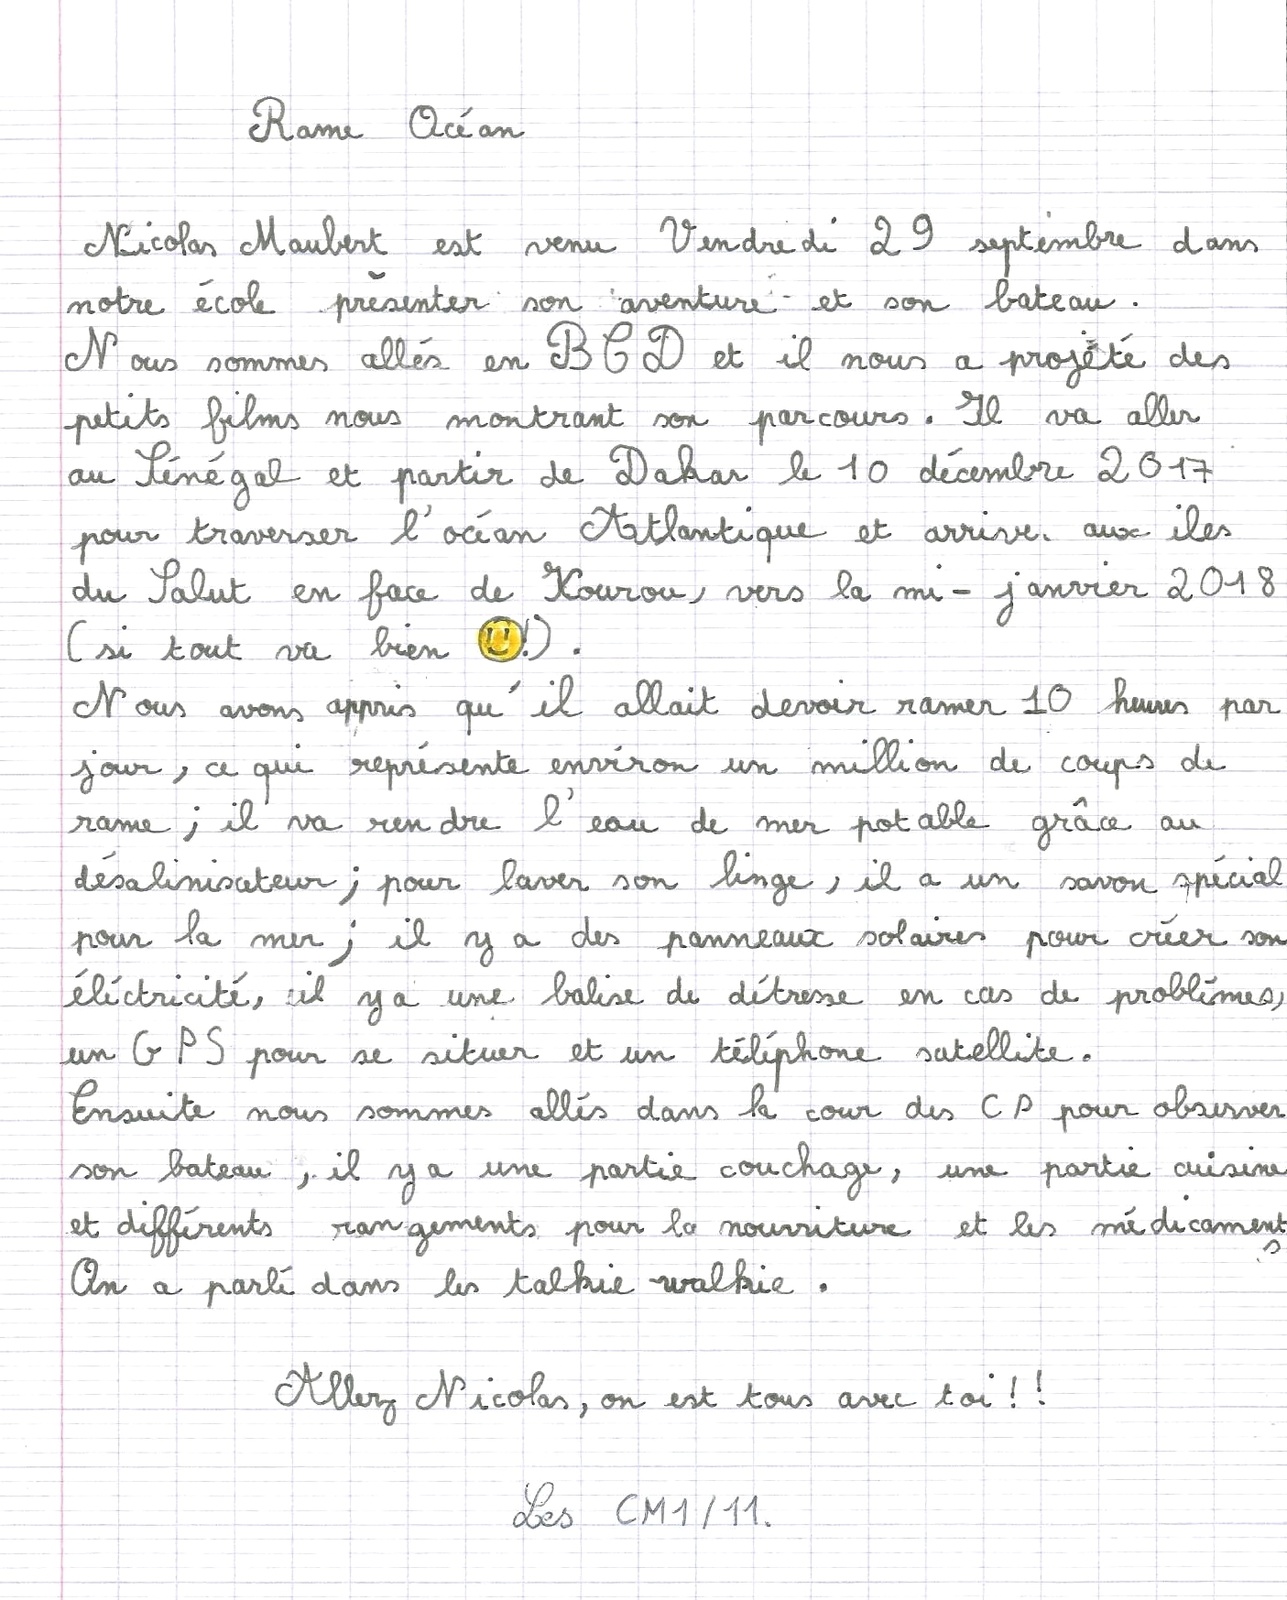 Rame Océan
Nicolas Maubert est venu Vendredi 29 septembre dans
notre école présenter son aventure et son bateau.
Nous sommes allés en BCD et il nous a projeté des
petits films nous montrant son parcours. Il va aller
au Sénégal et partir de Dakar le 10 décembre 2017
pour traverser l'océan Atlantique et arrive. aux iles
du Salut en face de Kourou, vers la mi-janvier 2018
(si tout va bien 🙂!).
Nous avons appris qu'il allait devoir ramer 10 heures par
jour, ce qui représente environ un million de coups de
rame ; il va rendre l'eau de mer potable grâce au
désalinisateur ; pour laver son linge, il a un savon spécial
pour la mer ; il y a des panneaux solaires pour créer son
éléctricité, il y a une balise de détresse en cas de problèmes,
un GPS pour se situer et un téléphone satellite.
Ensuite nous sommes allés dans la cour des CP pour observer
son bateau, il y a une partie couchage, une partie cuisine
et différents rangements pour la nourriture et les médicaments
On a parlé dans les talkie-walkie.
Allez Nicolas, on est tous avec toi!!
Les CM1/11.